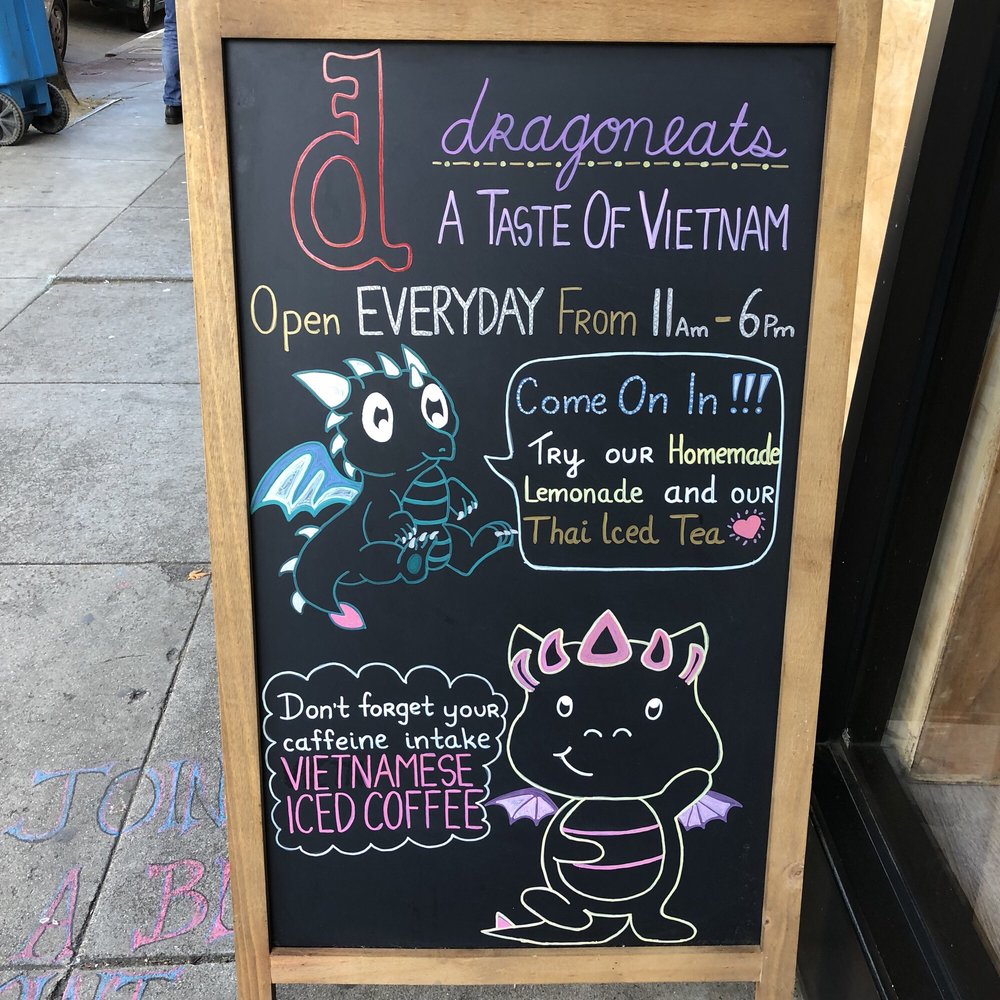 d
dragoneats
A TASTE OF VIETNAM
Open EVERYDAY FROM 11AM - 6PM
Come On In !!!
Try OUR Homemade
Lemonade and OUR
Thai Iced Tea
Don't forget your
caffeine intake
VIETNAMESE
ICED COFFEE
JOIN
A